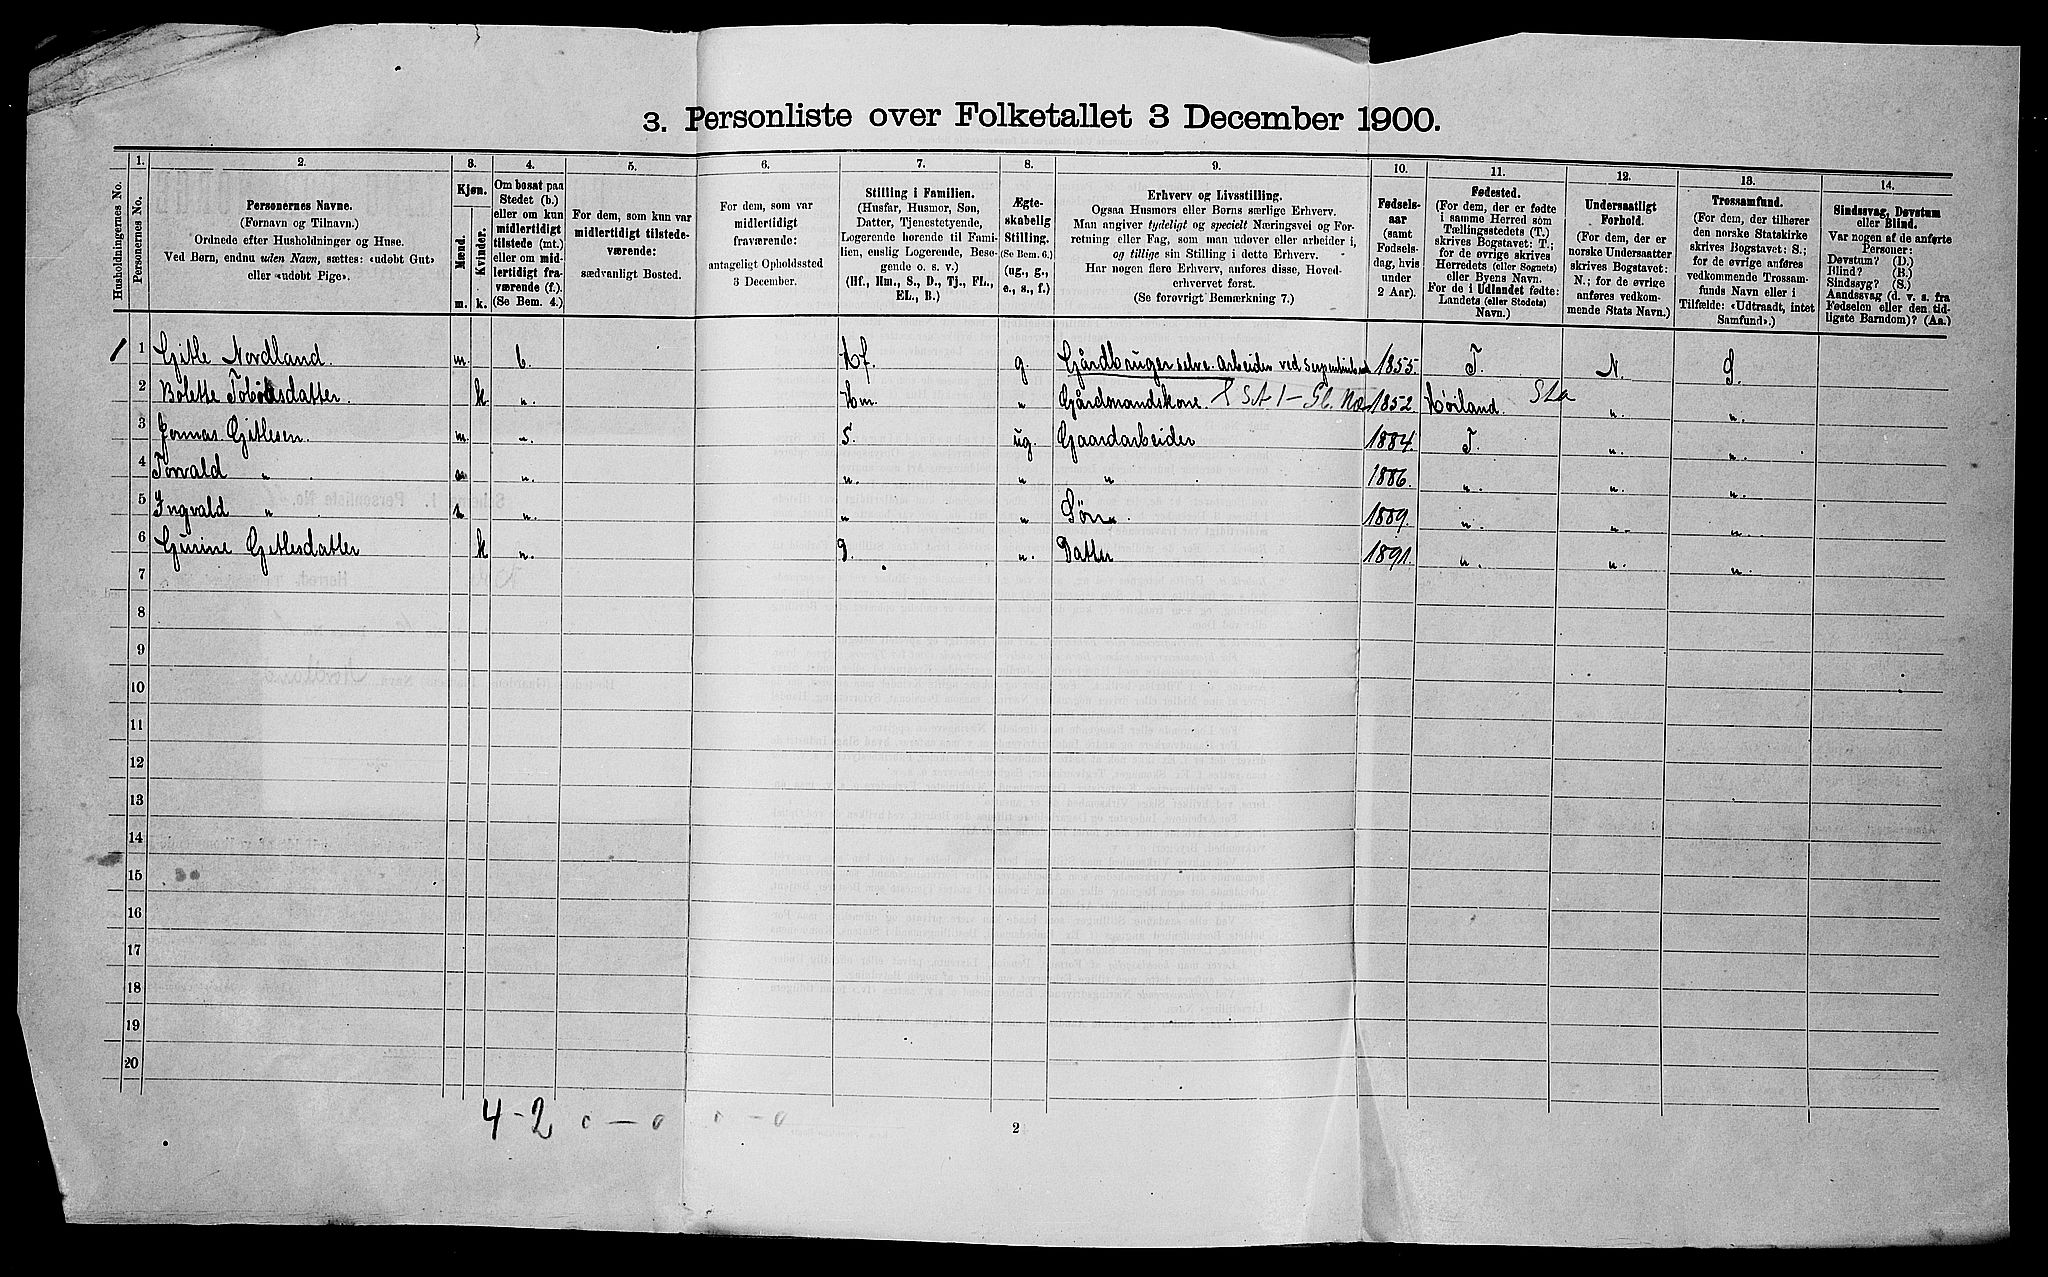 3. Personliste over Folketallet 3 December 1900.
Husholdningernes No.
1.
Personernes No.
2.
Personernes Navne.
(Fornavn og Tilnavn.)
Ordnede efter Husholdninger og Huse.
Ved Børn, endnu uden Navn, sættes: «udøbt Gut»
eller «udøbt Pige».
3.
Kjøn.
Mænd.
Kvinder.
m.
k.
4.
Om bosat paa
Stedet (b.)
eller om kun
midlertidigt
tilstede (mt.)
eller om mid-
lertidigt fra-
værende (f.).
(Se Bem. 4.)
5.
For dem, som kun var
midlertidigt tilstede-
værende:
sædvanligt Bosted.
6.
For dem, som var
midlertidigt
fraværende:
antageligt Opholdssted
3 December.
7.
Stilling i Familien.
(Husfar, Husmor, Søn,
Datter, Tjenestetyende,
Logerende hørende til Fami-
lien, enslig Logerende, Besø-
gende o. s. v.)
(Hf., Hm., S., D., Tj., FL.,
EL., B.)
8.
Ægte-
skabelig
Stilling.
(Se Bem. 6.)
(ug., g.,
e., s., f.)
9.
Erhverv og Livsstilling.
Ogsaa Husmors eller Børns særlige Erhverv.
Man angiver tydeligt og specielt Næringsvei og For-
retning eller Fag, som man udøver eller arbeider i,
og tillige sin Stilling i dette Erhverv.
Har nogen flere Erhverv, anføres disse, Hoved-
erhvervet først.
(Se forøvrigt Bemærkning 7.)
10.
Fødsels-
aar
(samt
Fødsels-
dag, hvis
under
2 Aar).
11.
Fødested.
(For dem, der er fødte
i samme Herred som
Tællingsstedets (T.)
skrives Bogstavet: T.;
for de øvrige skrives
Herredets (eller Sognets)
eller Byens Navn.
For de i Udlandet fødte:
Landets (eller Stedets)
Navn.)
12.
Undersaatligt
Forhold.
(For dem, der er
norske Undersaatter
skrives Bogstavet:
N.; for de øvrige
anføres vedkom-
mende Stats Navn.)
13.
Trossamfund.
(For dem, der tilhører
den norske Statskirke
skrives Bogstavet: S.;
for de øvrige anføres
vedkommende Trossam-
funds Navn eller i
Tilfælde: «Udtraadt, intet
Samfund».)
14.
Sindssvag, Døvstum
eller Blind.
Var nogen af de anførte
Personer:
Døvstum? (D.)
Blind? (B.)
Sindssyg? (S.)
Aandssvag (d. v. s. fra
Fødselen eller den tid-
ligste Barndom)? (Aa.)
1 1 Gitle Nordland. m. b. Hf. g Gårdbruger selve. Arbeider ved 1855. T. N. S.
2 Bolette k „. Hm. „ Gårdmandskone. 1852. Høiland. Sta „. „.
3 Jonnas Gitlesen. m. „. S. ug. Gaardarbeider 1884. T. „. „.
4 Torvald „ . m „. „. „ „ . 1886. „. „. „.
5 Ingvald „ . „. „ „ Søn. 1889. „. „. „.
6 Gurine Gitlesdatter k „. D. „. Datter 1891. „. „. „.
7
8
9
10
11
12
13
14
15
16
17
18
19
20
4-2 0 — 0 0 — 0
2